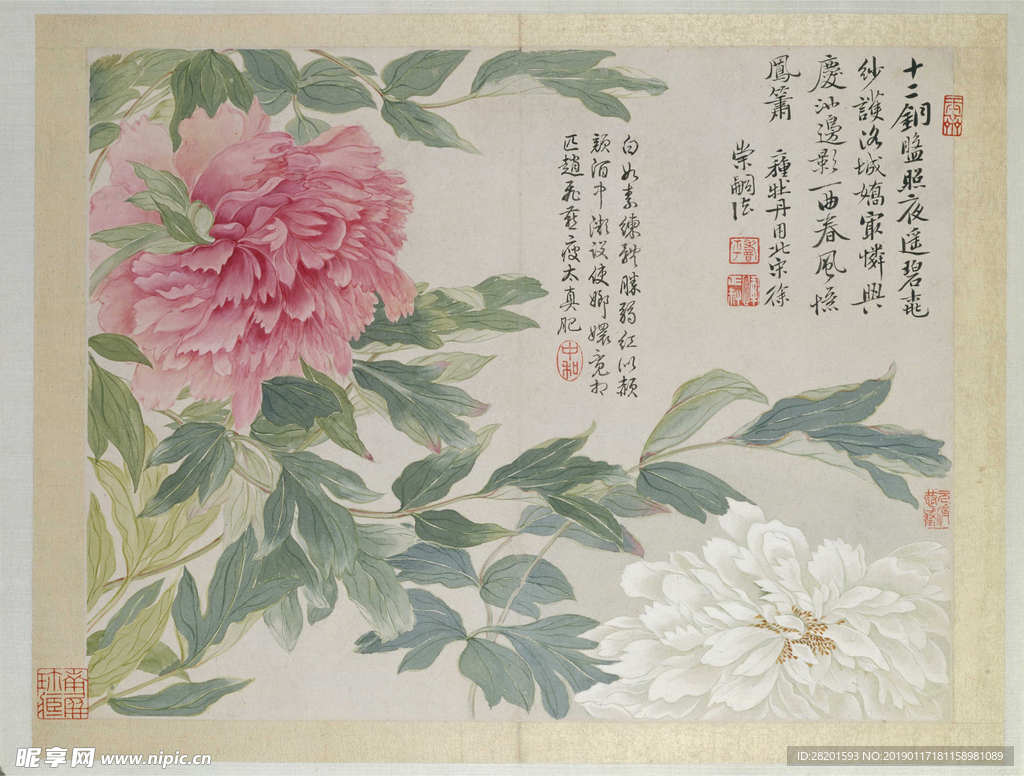 十二銅盤照夜遥碧桃
紗護洛城嬌最憐興
慶池邊影一曲春風憶
鳳簫 二種牡丹用北宋徐
崇嗣法
白如素練 勝弱紅以頳
顏酒中潮設使 嬛竟相
匹趙飛燕瘦太真肥
中和
昵享网 www.nipic.cn
ID:28201593 NO:20190117181158981089